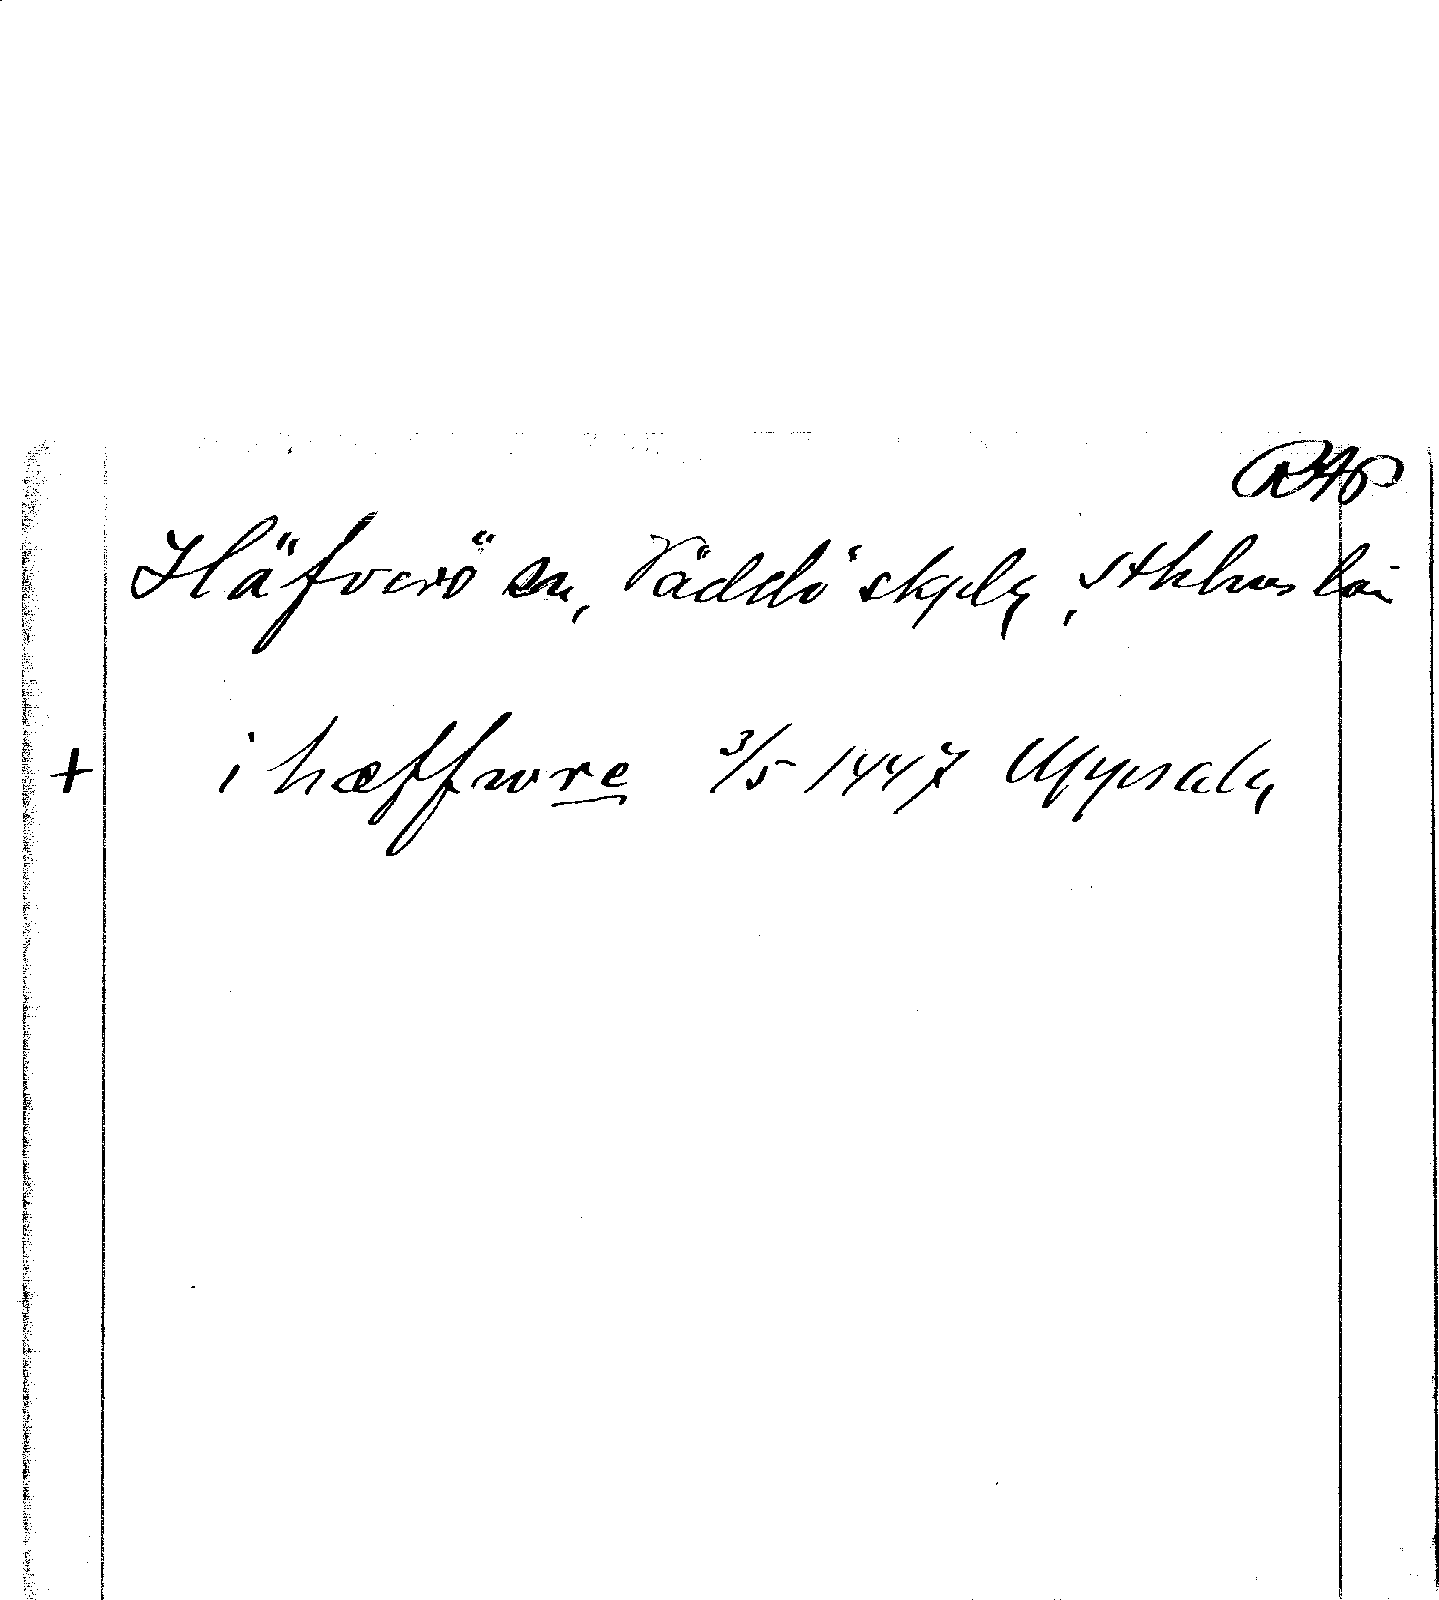 Häfverö sn, Väddö skplg, Sthlms län
+ i hæffwre 3/5 1447 Uppsala